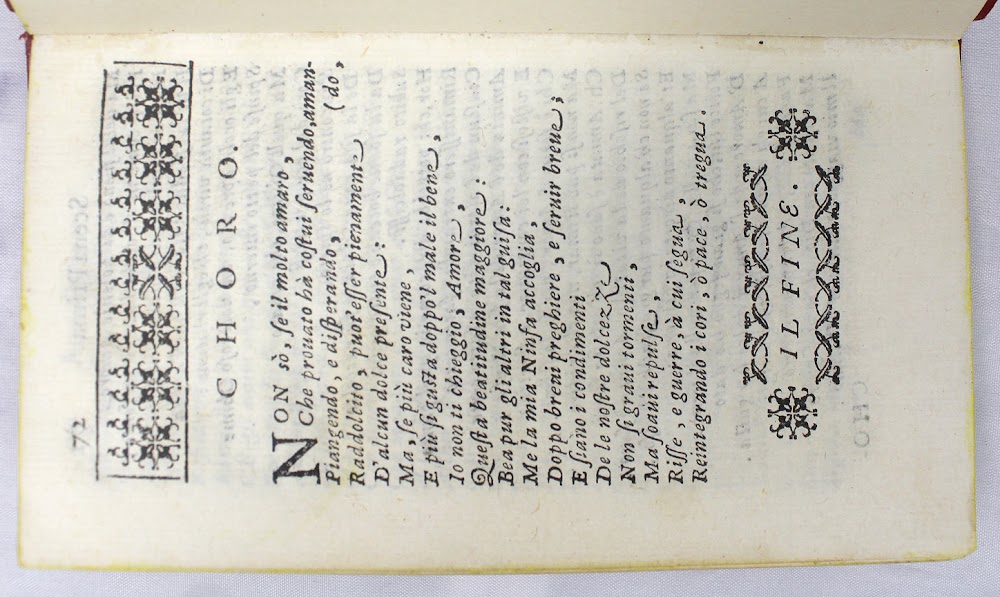 72
CHORO.
NON sò, se il molto amaro,
Che prouato ha costui seruendo, aman-
(do,
Piangendo, e disperando,
Raddolcito, puot'esser pienamente
D'alcun dolce presente:
Ma, se più caro viene,
E più si gusta doppo'l male il bene,
Io non ti chieggio, Amore,
Questa beatitudine maggiore:
Bea pur gli altri in tal guisa:
Me la mia Ninfa accoglia,
Doppo breui preghiere, e seruir breue;
E siano i condimenti
De le nostre dolcezze
Non sì graui tormenti,
Ma soaui repulse,
Risse, e guerre, à cui segua,
Reintegrando i cori, ò pace, ò tregua.
IL FINE.